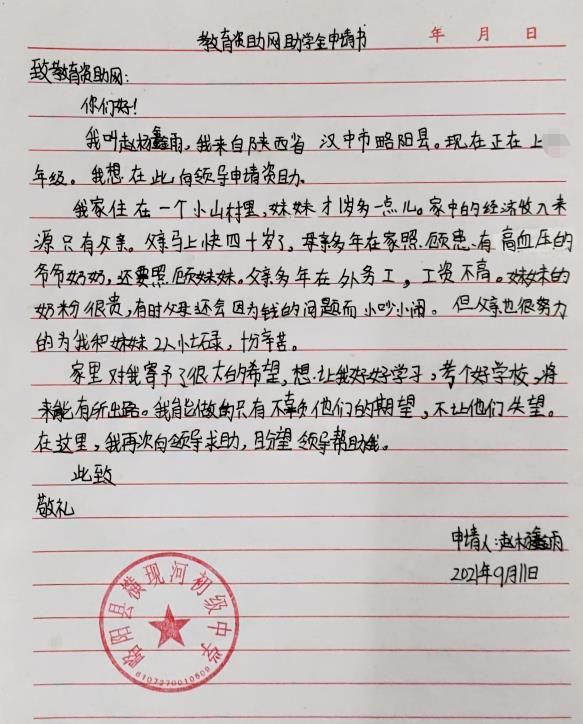 教育资助网助学金申请书
年 月 日
致教育资助网：
你们好！
我叫赵杨鑫雨，我来自陕西省 汉中市略阳县。现在正在上
年级。我想在此向领导申请资助.
我家住在一个小山村里，妹妹才1岁多一点儿。家中的经济收入来
源只有父亲。父亲马上快四十岁了，母亲多年在家照顾患有高血压的
爷爷奶奶，还要照顾妹妹。父亲多年在外务工，工资不高。妹妹的
奶粉很贵，有时父母还会因为钱的问题而小吵小闹。但父亲也很努力
的为我和妹妹2人忙碌，十分辛苦。
家里对我寄予了很大的希望，想让我好好学习，考个好学校，将
来能有所出路。我能做的只有不辜负他们的期望，不让他们失望。
在这里，我再次向领导求助，盼望领导帮助我。
此致
敬礼
申请人：赵杨鑫雨
2021年9月11日
略阳县横现河初级中学
6107270010809